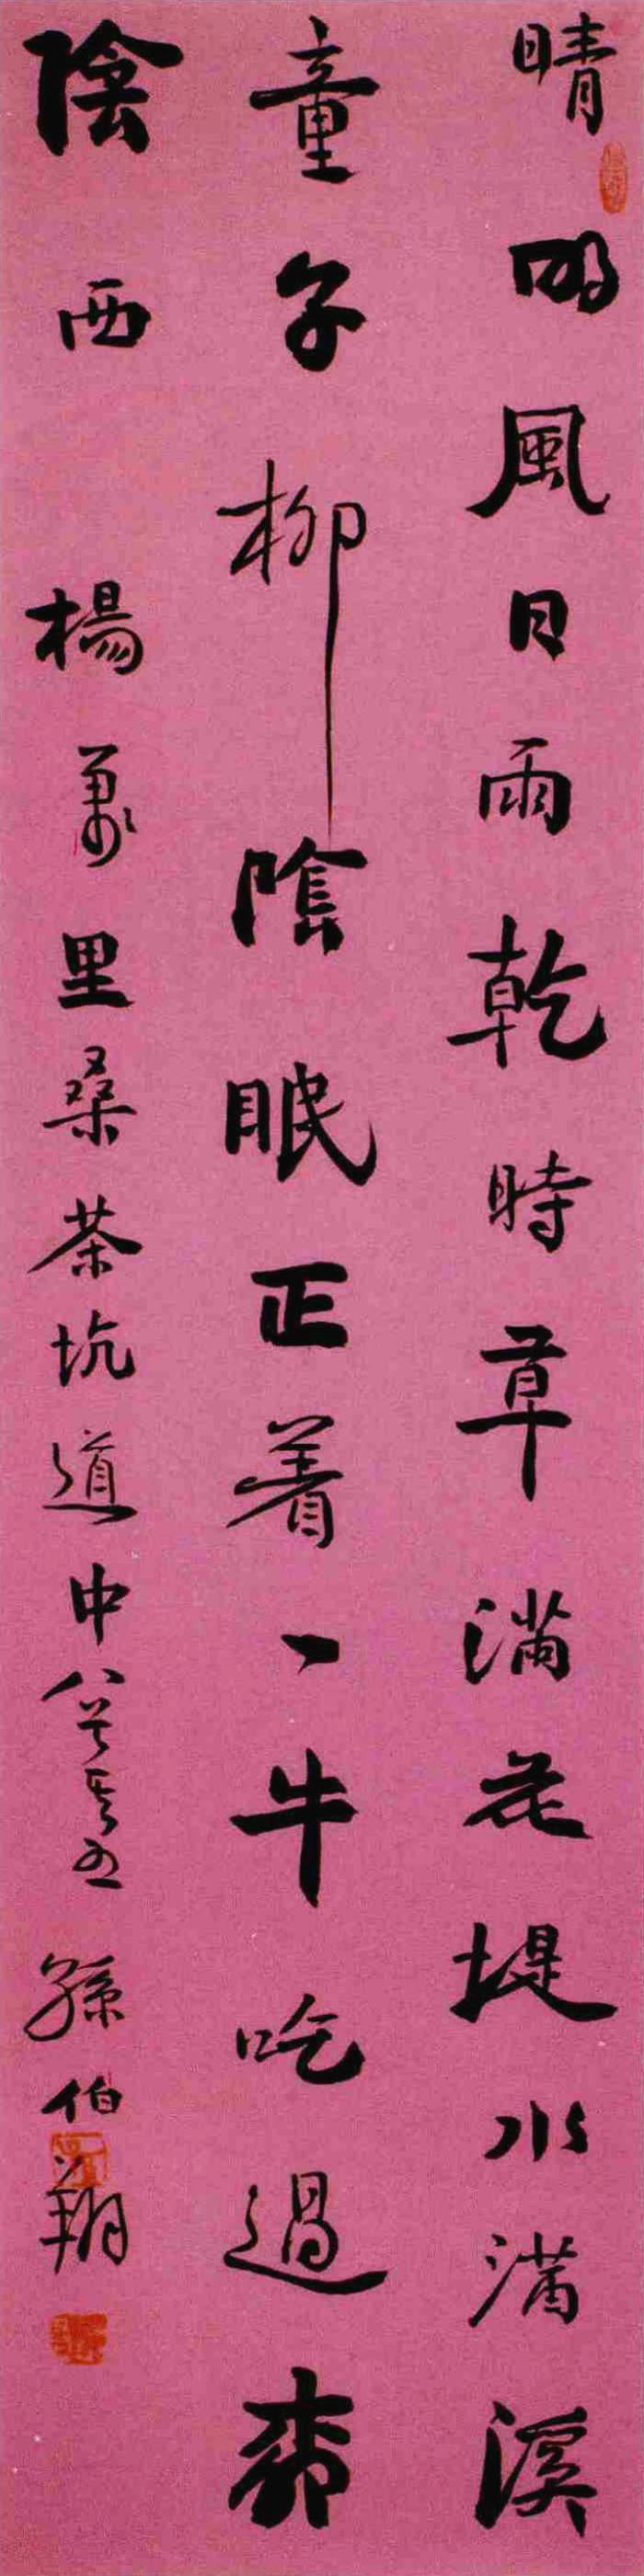 晴明風日雨乾時草滿花堤水滿溪
童子柳陰眠正着一牛吃過柳
陰西 楊萬里桑茶坑道中八首其五 孫伯翔